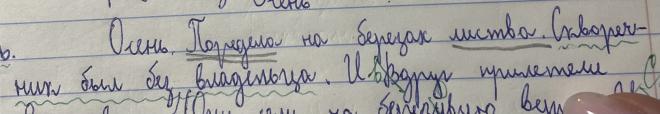 очень
Осень. Поредела на березах листва. Сквореч-
ник был без владельца. И вдруг прилетели
на